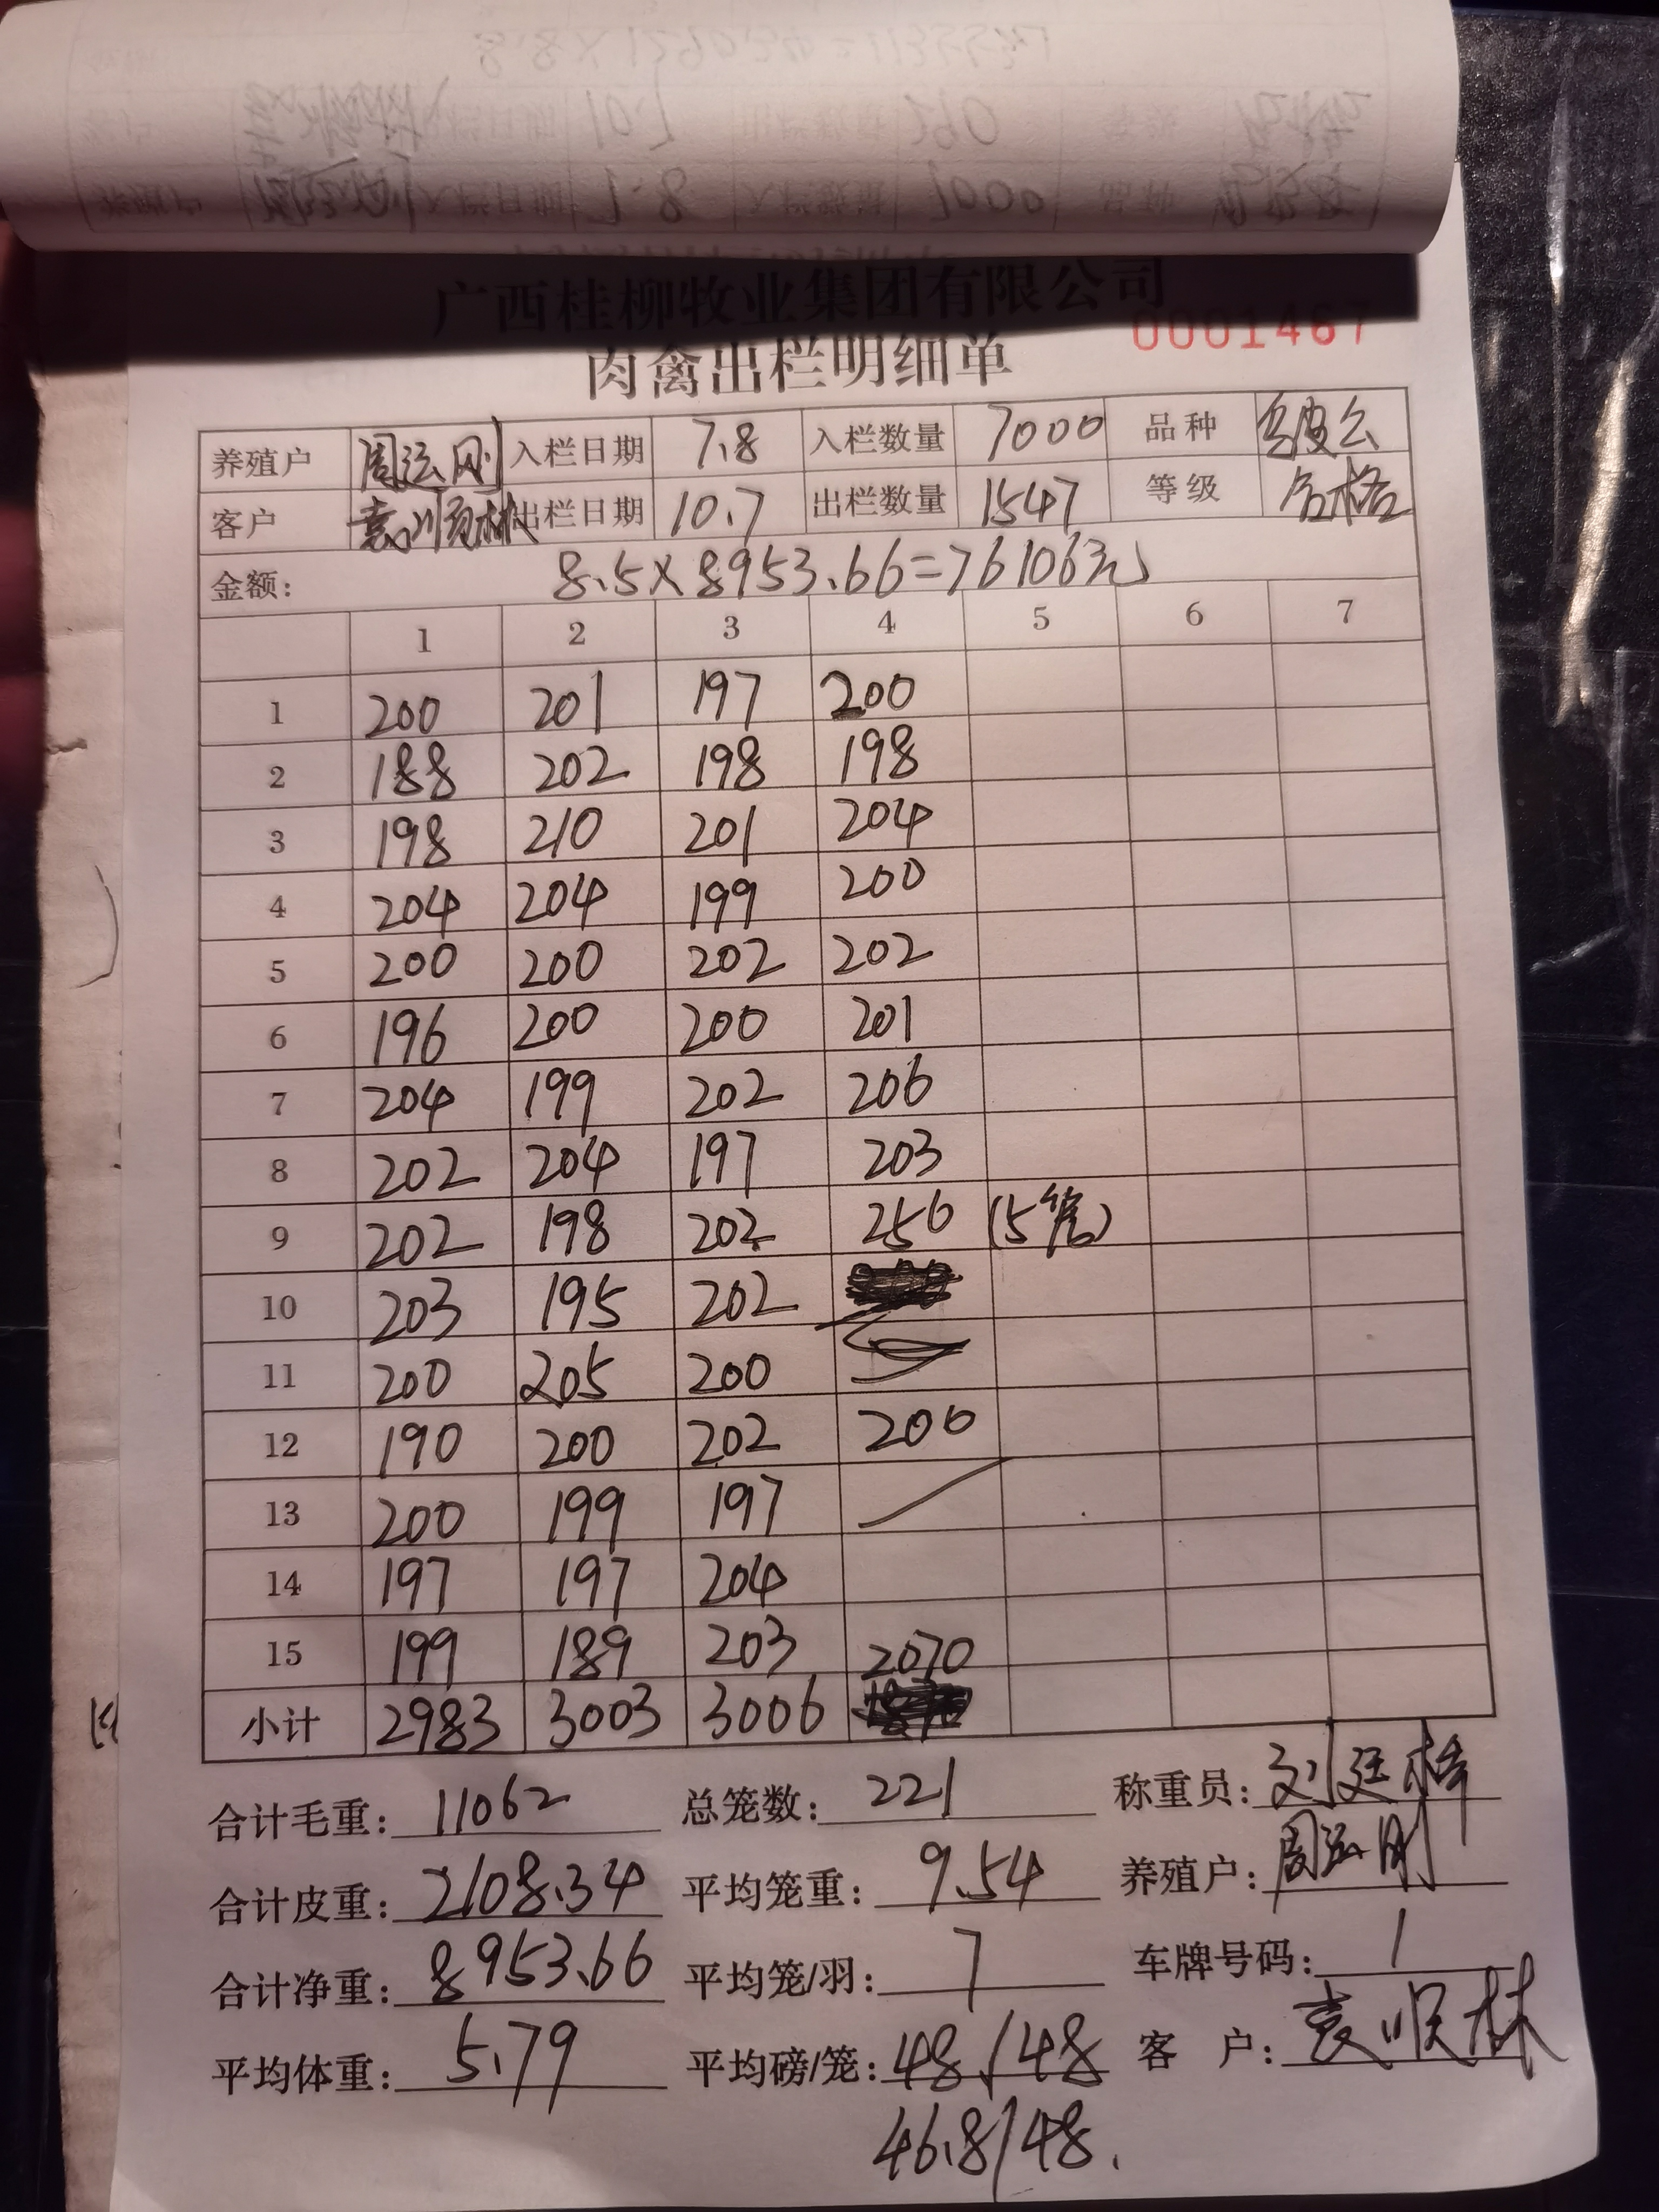 广西桂柳牧业集团有限公司
肉禽出栏明细单 0001467
养殖户 周运刚 入栏日期 7.8 入栏数量 7000 品种
客户 袁顺林 出栏日期 10.7 出栏数量 1547 等级 合格
金额: 8.5×8953.66=76106元
1 2 3 4 5 6 7
1 200 201 197 200
2 188 202 198 198
3 198 210 201 204
4 204 204 199 200
5 200 200 202 202
6 196 200 200 201
7 204 199 202 206
8 202 204 197 203
9 202 198 202 256 (5笼)
10 203 195 202
11 200 205 200
12 190 200 202 200
13 200 199 197
14 197 197 204
15 199 189 203 2070
小计 2983 3003 3006
合计毛重: 11062 总笼数: 221 称重员:
合计皮重: 2108.34 平均笼重: 9.54 养殖户: 周运刚
合计净重: 8953.66 平均笼/羽: 7 车牌号码: 1
平均体重: 5.79 平均磅/笼: 48/48 客 户: 袁顺林
46.8/48.